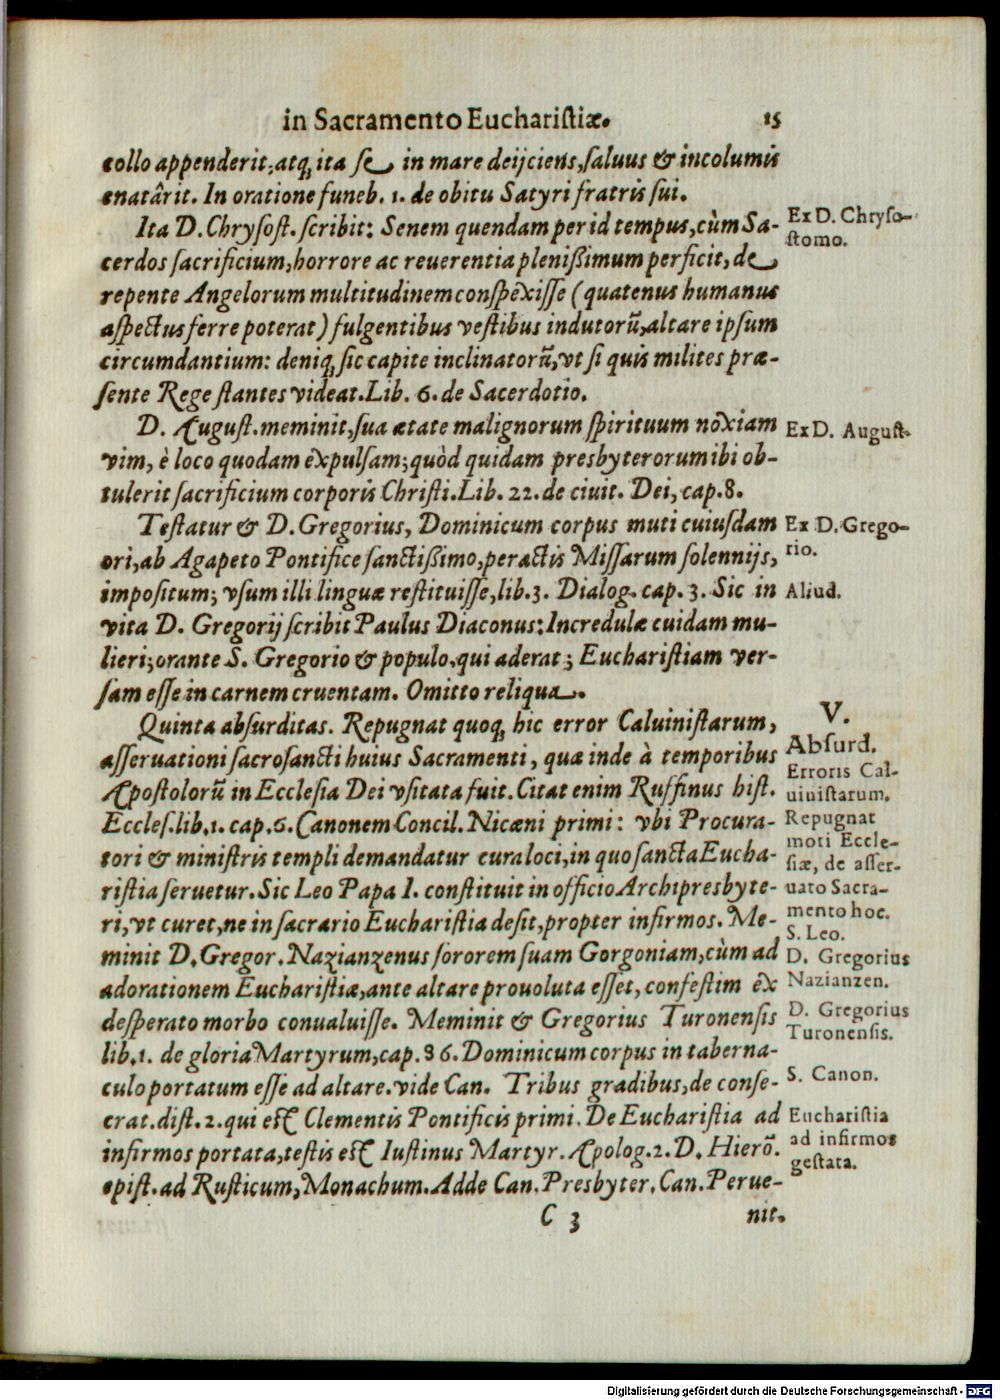 in Sacramento Euchariſtiæ. 15
collo appenderit, atq́ue ita ſe in mare deijciens, ſaluus & incolumis
enatârit. In oratione funeb. 1. de obitu Satyri fratris ſui.
Ita D. Chryſoſt. ſcribit: Senem quendam per id tempus, cùm Sa-
cerdos ſacrificium, horrore ac reuerentia pleniſſimum perficit, de
repente Angelorum multitudinem conſpexiſſe (quatenus humanus
aſpectus ferre poterat) fulgentibus veſtibus indutorũ, altare ipſum
circumdantium: deniq; ſic capite inclinatorũ, vt ſi quis milites præ-
ſente Rege ſtantes videat. Lib. 6. de Sacerdotio.
Ex D. Chryſo-
ſtomo.
D. Auguſt. meminit, ſua ætate malignorum ſpirituum noxiam
vim, è loco quodam expulſam; quòd quidam presbyterorum ibi ob-
tulerit ſacrificium corporis Chriſti. Lib. 22. de ciuit. Dei, cap. 8.
Ex D. Auguſt.
Teſtatur & D. Gregorius, Dominicum corpus muti cuiuſdam
ori, ab Agapeto Pontifice ſanctiſſimo, peractis Miſſarum ſolennijs,
impoſitum; vſum illi linguæ reſtituiſſe, lib. 3. Dialog. cap. 3. Sic in
vita D. Gregorij ſcribit Paulus Diaconus: Incredulæ cuidam mu-
lieri; orante S. Gregorio & populo, qui aderat; Euchariſtiam ver-
ſam eſſe in carnem cruentam. Omitto reliqua.
Ex D. Grego-
rio.
Aliud.
Quinta abſurditas. Repugnat quoq; hic error Caluiniſtarum,
aſſeruationi ſacroſancti huius Sacramenti, quæ inde à temporibus
Apoſtolorũ in Eccleſia Dei vſitata fuit. Citat enim Ruffinus hiſt.
Eccleſ. lib. 1. cap. 6. Canonem Concil. Nicæni primi: vbi Procura-
tori & miniſtris templi demandatur cura loci, in quo ſancta Eucha-
riſtia ſeruetur. Sic Leo Papa I. conſtituit in officio Archipresbyte-
ri, vt curet, ne in ſacrario Euchariſtia deſit, propter infirmos. Me-
minit D. Gregor. Nazianzenus ſororem ſuam Gorgoniam, cùm ad
adorationem Euchariſtiæ, ante altare prouoluta eſſet, confeſtim ex
deſperato morbo conualuiſſe. Meminit & Gregorius Turonenſis
lib. 1. de gloria Martyrum, cap. 86. Dominicum corpus in taberna-
culo portatum eſſe ad altare. vide Can. Tribus gradibus, de conſe-
crat. diſt. 2. qui eſt Clementis Pontificis primi. De Euchariſtia ad
infirmos portata, teſtis eſt Iuſtinus Martyr. Apolog. 2. D. Hierõ.
epiſt. ad Ruſticum, Monachum. Adde Can. Presbyter. Can. Perue-
V.
Abſurd.
Erroris Cal-
uiniſtarum.
Repugnat
moti Eccle-
ſiæ, de aſſer-
uato Sacra-
mento hoc.
S. Leo.
D. Gregorius
Nazianzen.
D. Gregorius
Turonenſis.
S. Canon.
Euchariſtia
ad infirmos
geſtata.
C 3 nit.
Digitalisierung gefördert durch die Deutsche Forschungsgemeinschaft - DFG